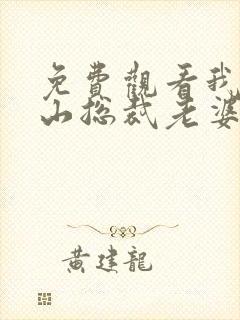 免費觀看我
山総裁老婆
黄建龍